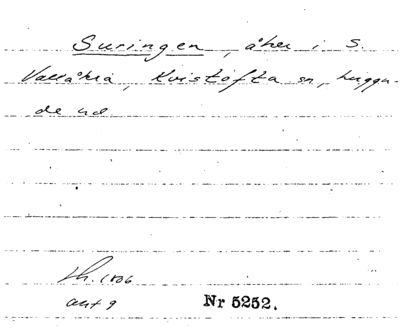 Suringen, åker i S.
Vallåkra, Kvistofta sn, Luggu-
de hd
Lh. 1806
akt 9 Nr 5252.